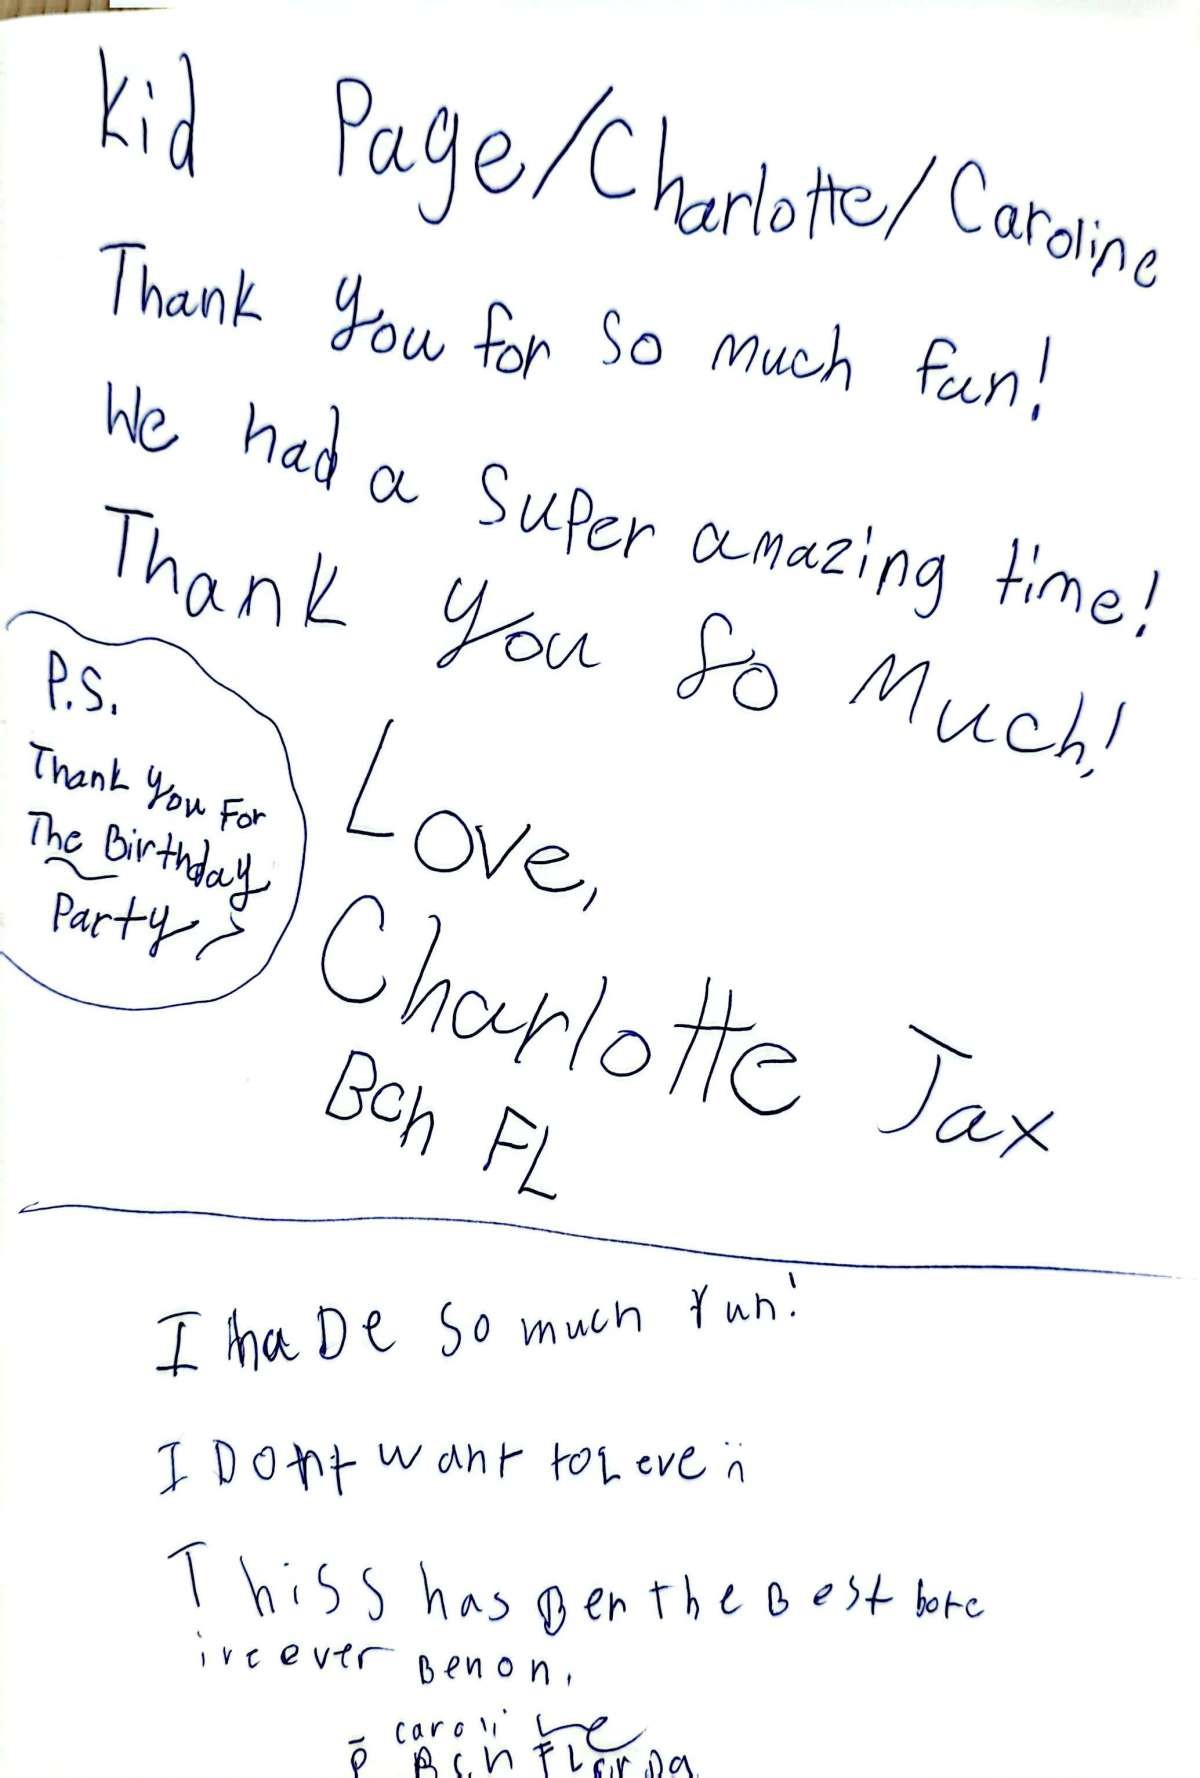 Kid Page/Charlotte/Caroline
Thank you for so much fun!
We had a super amazing time!
Thank you so Much!
P.S.
Thank you For
The Birthday
Party
Love,
Charlotte Jax
Bch FL
I haDe so much fun!
I Dont want to Leve
Thiss has Ben the Best bote
ive ever Ben on.
caroline
P Bch FLoriDa